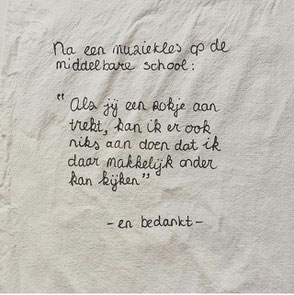 Na een muziekles op de
middelbare school:
"Als jij een rokje aan
trekt, kan ik er ook
niks aan doen dat ik
daar makkelijk onder
kan kijken"
- en bedankt -